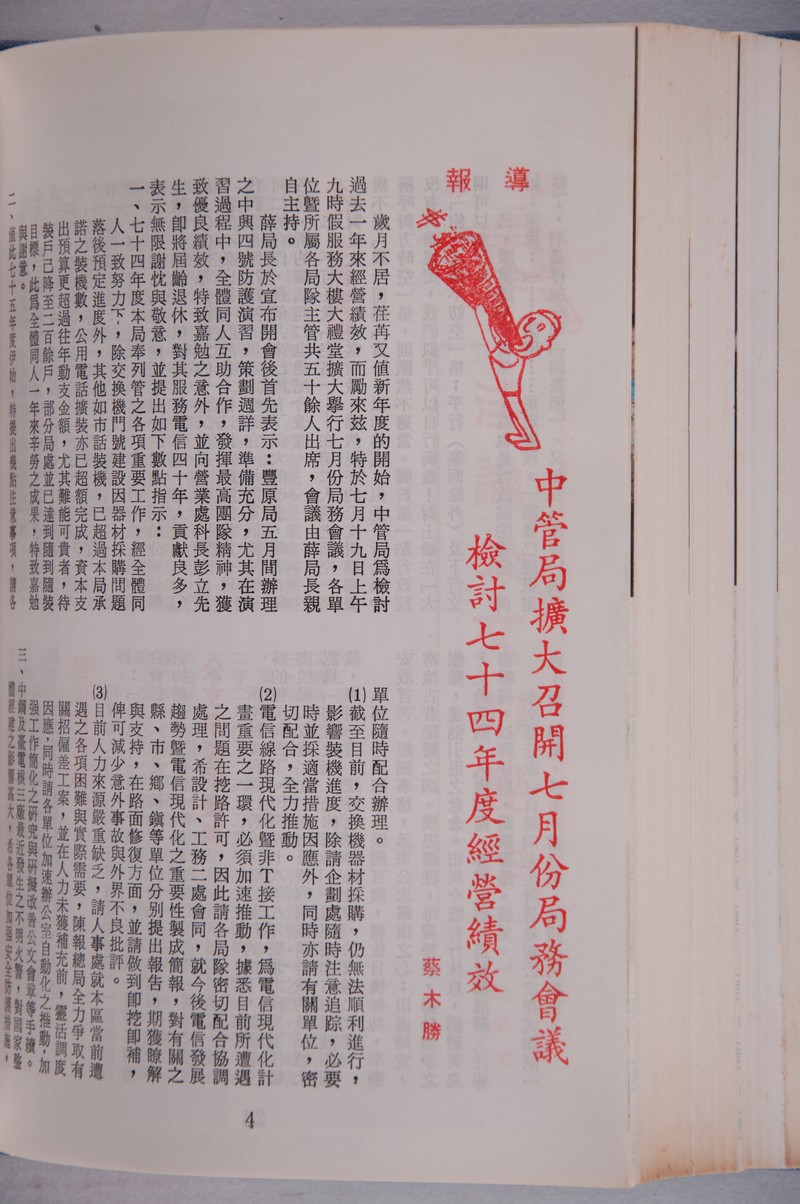 導報
中管局擴大召開七月份局務會議
檢討七十四年度經營績效
蔡木勝
歲月不居，荏苒又値新年度的開始，中管局爲檢討
過去一年來經營績效，而勵來玆，特於七月十九日上午
九時假服務大樓大禮堂擴大擧行七月份局務會議，各單
位曁所屬各局隊主管共五十餘人出席，會議由薛局長親
自主持。
薛局長於宣布開會後首先表示：豐原局五月間辦理
之中興四號防護演習，策劃週詳，準備充分，尤其在演
習過程中，全體同人互助合作，發揮最高團隊精神，獲
致優良績效，特致嘉勉之意外，並向營業處科長彭立先
生，卽將屆齡退休，對其服務電信四十年，貢獻良多，
表示無限謝忱與敬意，並提出如下數點指示：
一、七十四年度本局奉列管之各項重要工作，經全體同
人一致努力下，除交換機門號建設因器材採購問題
落後預定進度外，其他如市話裝機，已超過本局承
諾之裝機數，公用電話擴裝亦已超額完成，資本支
出預算更超過往年動支金額，尤其難能可貴者，待
裝戶已降至二百餘戶，部分局處並已達到隨到隨裝
目標，此爲全體同人一年來辛勞之成果，特致嘉勉
與謝意。
二、値此七十五年度伊始，特提出幾點注意事項，請各
單位隨時配合辦理。
(1)截至目前，交換機器材採購，仍無法順利進行，
影響裝機進度，除請企劃處隨時注意追踪，必要
時並採適當措施因應外，同時亦請有關單位，密
切配合，全力推動。
(2)電信線路現代化曁非T接工作，爲電信現代化計
畫重要之一環，必須加速推動，據悉目前所遭遇
之問題在挖路許可，因此請各局隊密切配合協調
處理，希設計、工務二處會同，就今後電信發展
趨勢曁電信現代化之重要性製成簡報，對有關之
縣、市、鄉、鎭等單位分別提出報告，期獲瞭解
與支持，在路面修復方面，並請做到卽挖卽補，
俾可減少意外事故與外界不良批評。
(3)目前人力來源嚴重缺乏，請人事處就本區當前遭
遇之各項困難與實際需要，陳報總局全力爭取有
關招僱差工案，並在人力未獲補充前，靈活調度
因應，同時請各單位加速辦公室自動化之推動，加
强工作簡化之研究與研擬改善公文會章等手續。
三、中鋼及臺電核三廠最近發生之不明火警，對國家整
體經建之影響甚大，希各單位加强安全防護措施，
4